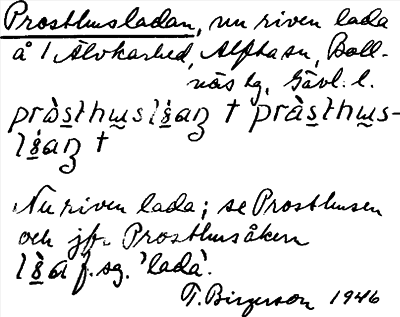 Prosthusladan, nu riven lada
å 1 Älvkarhed, Alfta sn, Boll-
näs tg, Gävl. l.
pràsthu̱slà̱aꞃ † pràsthu̱s-
là̱aꞃ †
Nu riven lada; se Prosthusen
och jfr Prosthusåkern
là̱a f. sg. 'lada'.
T. Birgerson 1946